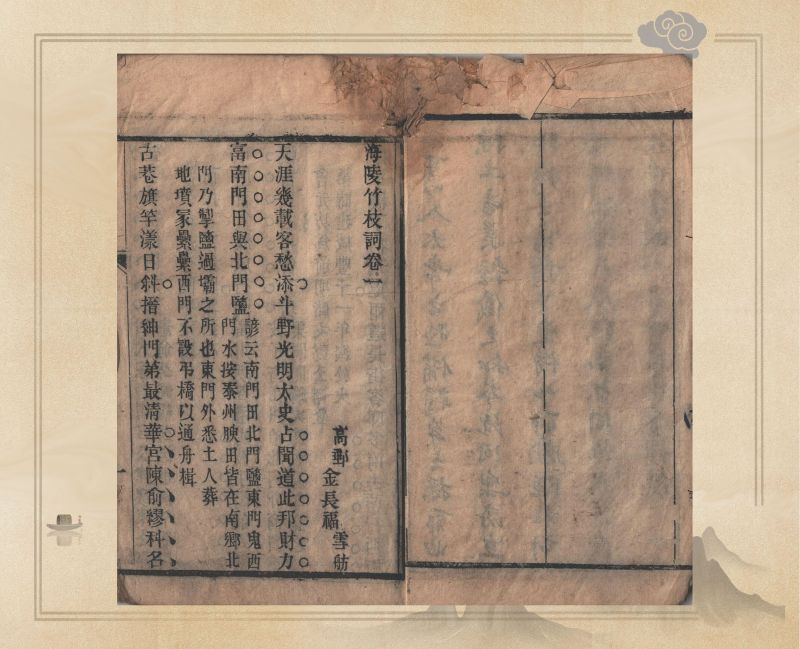 海陵竹枝詞卷一
高郵 金長福 雪舫
天涯幾載客愁添斗野光明太史占聞道此邦財力
富南門田與北門鹽諺云南門田北門鹽東門鬼西
門水按泰州腴田皆在南鄉北
門乃掣鹽過壩之所也東門外悉土人葬
地墳冢纍纍西門不設弔橋以通舟楫
古巷旗竿漾日斜搢紳門第最清華宮陳俞繆科名